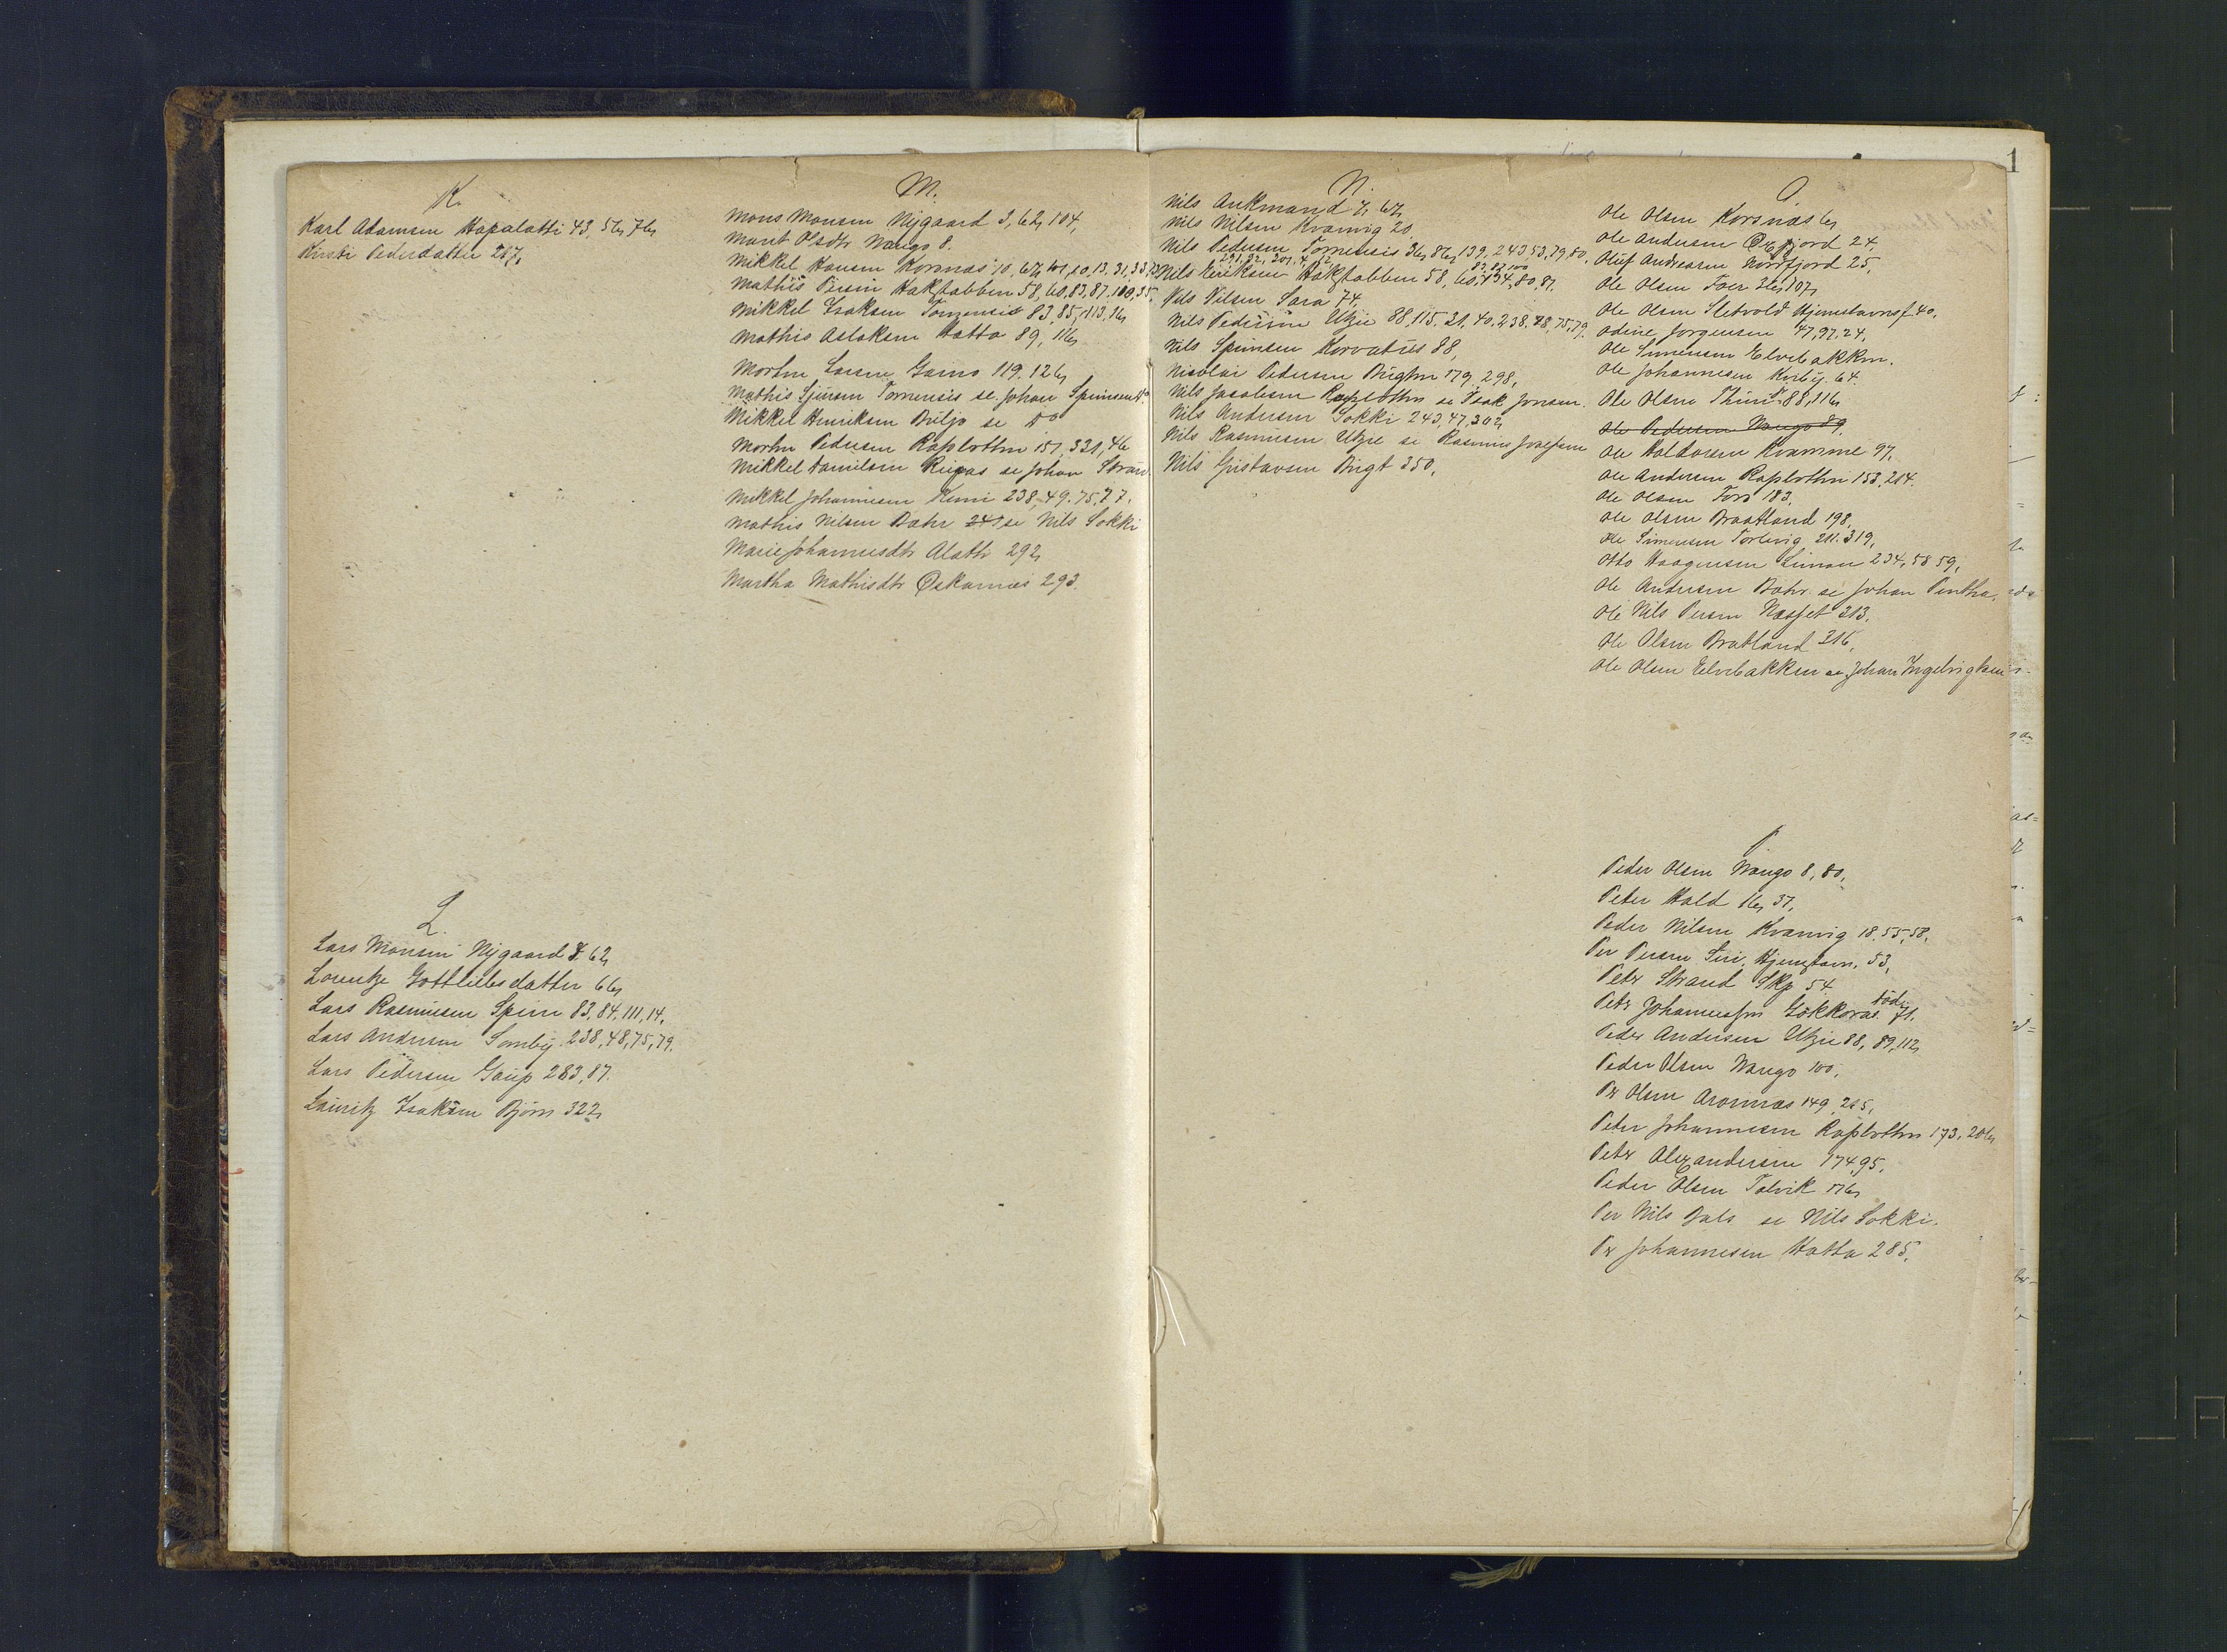 K.
Karl Adamsen Hapalatti 43, 56, 76,
Kirsti Pedersdatter 217,
L.
Lars Monsen Nygaard 8. 62,
Lorentze Gottliebsdatter 66,
Lars Rasmusen Spein 83, 84, 111, 14,
Lars Andersen Somby. 238, 48, 75, 79.
Lars Pedersen Gaup 283, 87.
Lauritz Isaksen Björn 322,
M.
Mons Monsen Nygaard 3, 62, 104,
Marit Olsdtr Wango 8.
Mikkel Hansen Korsnæs 10, 67,
Mathis Persen Hakstabben 58, 60, 83, 87, 100, 35.
Mikkel Isaksen Tornensis 83, 85, 113, 16,
Mathis Aslaksen Hatta 89, 116,
Morten Larsen Gaino 119. 126,
Mathis Tornensis se Johan
Mikkel Henriksen Buljo se Do
Morten Pedersen Rapbotten 151, 331, 46
Mikkel Danielsen Riepas se Johan Strand.
Mikkel Johannesen Kemi 238, 49. 75, 77.
Mathis Nilsen Bæhr 241 se Nils Sokki
Marie Johannesdtr Alatti 292,
Martha Mathisdtr Öskarnes 293.
N.
Nils Ankmand 7, 67,
Nils Nilsen Kvænvig 20,
Nils Pedersen Tornensis 36, 86, 139, 243, 53, 79, 80,
291, 92,
83, 87, 100
Nils Eriksen Hakstabben 58, 60, 80, 81.
Nils Nilsen Sara 74,
Nils Pedersen Utzie 88, 115. 21, 40, 238. 48, 75, 79.
Nils Korvatus 88,
Nicolai Pedersen Bugten 179, 298,
Nils Jacobsen Rapbotten se Isak Jonsen.
Nils Andersen Sokki 243, 47, 302,
Nils Rasmusen Utzie se Rasmus Josefsen
Nils Gustavsen Bugt 350,
O.
Ole Olsen Korsnæs 6,
Ole Andersen Öxfjord 24,
Oluf Andreasen Nordfjord 25,
Ole Olsen Toer 36, 107,
Ole Olsen Sletvold Hjemstavnsf. 40,
Odine Jorgensen 47, 97, 24,
Ole Simensen Elvebakken.
Ole Johannesen Kviby. 64.
Ole Olsen Thuri 88, 116,
Ole Pedersen Wango 89,
Ole Haldorsen Kvamme 97,
Ole Andersen Rapbotten 153, 204.
Ole Olsen Fors 183,
Ole Olsen Braatland 198,
Ole Simensen Torbvig 211. 319,
Otto Haagensen Simon 234, 58 59,
Ole Andersen Bæhr se Johan Pentha.
Ole Nils Persen Næsset 313,
Ole Olsen Bratland 316,
Ole Olsen Elvebakken se Johan
P.
Peder Olsen Wango 8, 80,
Peter Hald 16, 37,
Peder Nilsen Kvænvig 18. 55, 58,
Per Persen Siri. Hjemstavn. 53,
Peter Strand Skp 54
Peter Johannessen Gokkoras död. 71.
Peder Andersen Utzie 88, 89, 112,
Peder Olsen Wango 100,
Pr Olsen Aronnæs 149, 265,
Peter Johannesen Rapbotten 173, 206,
Peter Alexandersen 174, 95,
Peder Olsen Talvik 176,
Per Nils Bals se Nils Sokki.
Pr Johannesen Hatta 285,
1